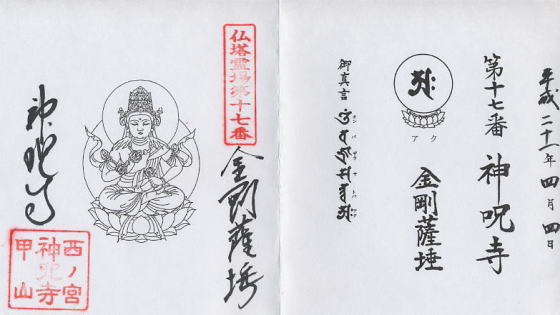 平成二十一年四月四日
第十七番 神呪寺
金剛薩埵
アク
御真言
仏塔霊場第十七番
金剛薩埵
神呪寺
西ノ宮
神呪寺
甲山